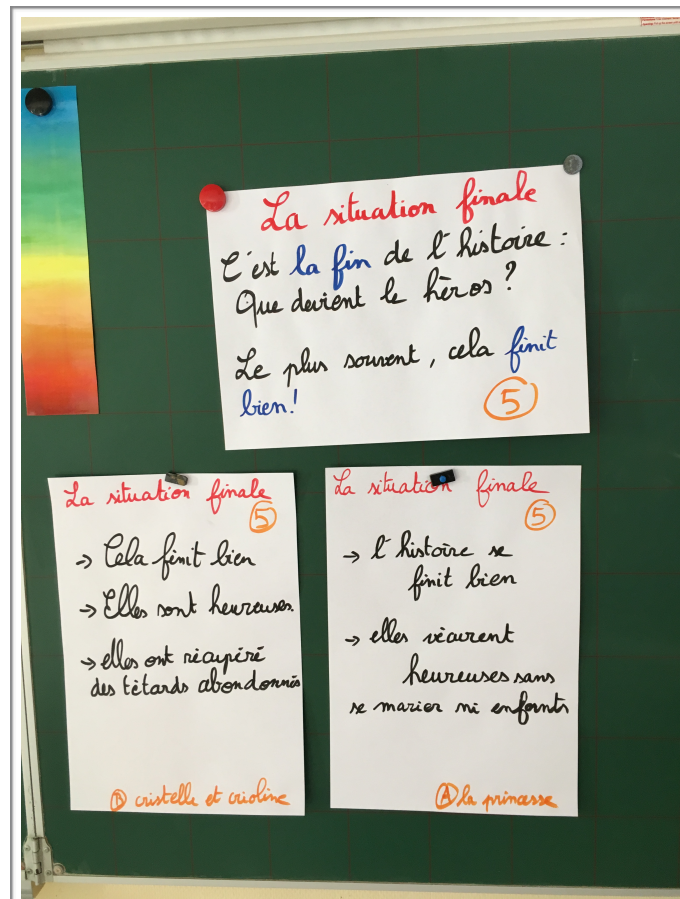 La situation finale
C'est la fin de l'histoire :
Que devient le héros ?
Le plus souvent, cela finit
bien !
5
La situation finale
5
→ Cela finit bien
→ Elles sont heureuses.
→ elles ont récupéré
des tètards abandonnés
B cristelle et crioline
La situation finale
5
→ l'histoire se
finit bien
→ elles vécurent
heureuses sans
se marier ni enfants
A la princesse